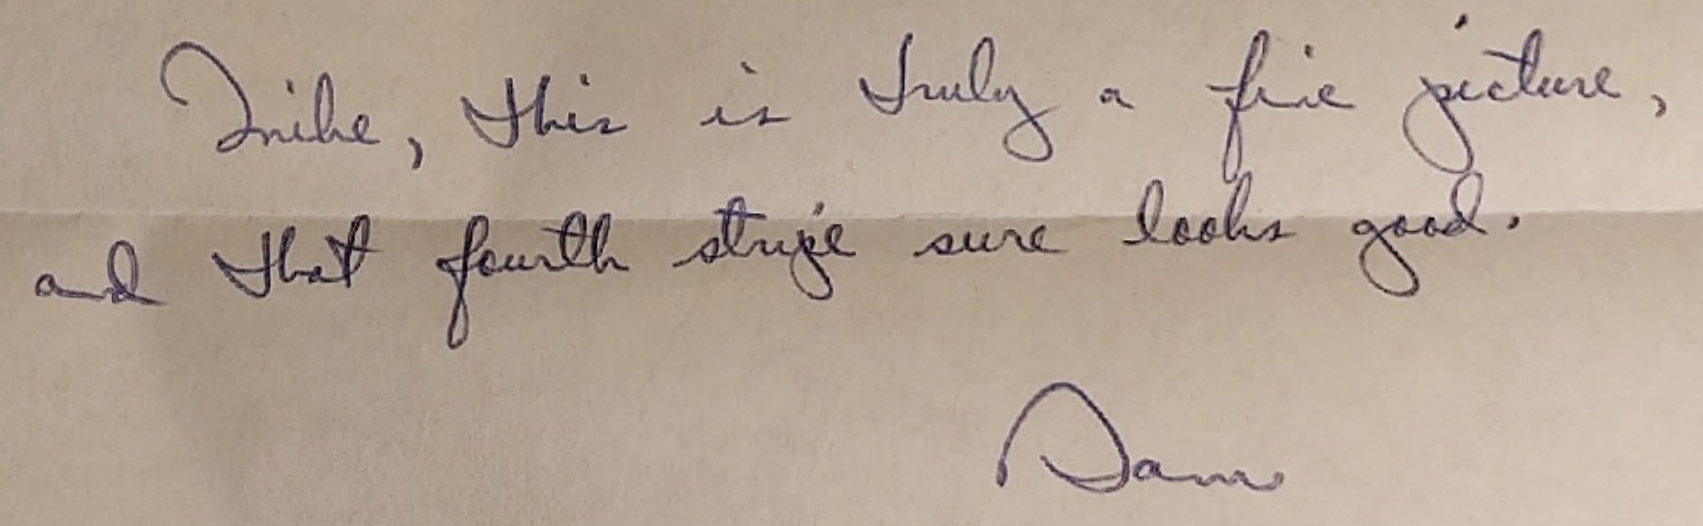 Mike, this is truly a fine picture,
and that fourth stripe sure looks good.
Sam